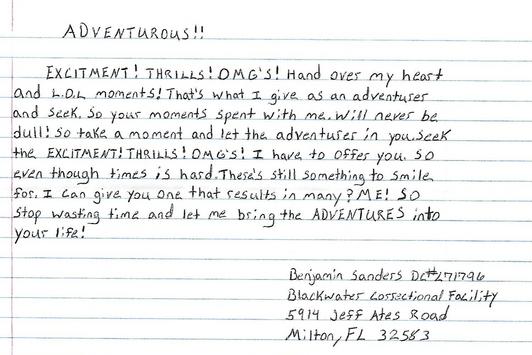 ADVENTUROUS!!
EXCITMENT! THRILLS! OMG'S! Hand over my heart
and L.O.L moments! That's what I give as an adventurer
and seek. So your moments spent with me. Will never be
dull! So take a moment and let the adventurer in you. Seek
the EXCITMENT! THRILLS! OMG'S! I have to offer you. SO
even though times is hard. There's still something to smile
for. I can give you one that results in many? ME! SO
stop wasting time and let me bring the ADVENTURES into
your life!
Benjamin Sanders DC#L71796
Blackwater Correctional Facility
5914 Jeff Ates Road
Milton, FL 32583